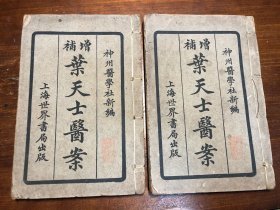 神州醫學社新編
增補
葉天士醫案
上海世界書局出版
神州醫學社新編
增補
葉天士醫案
上海世界書局出版